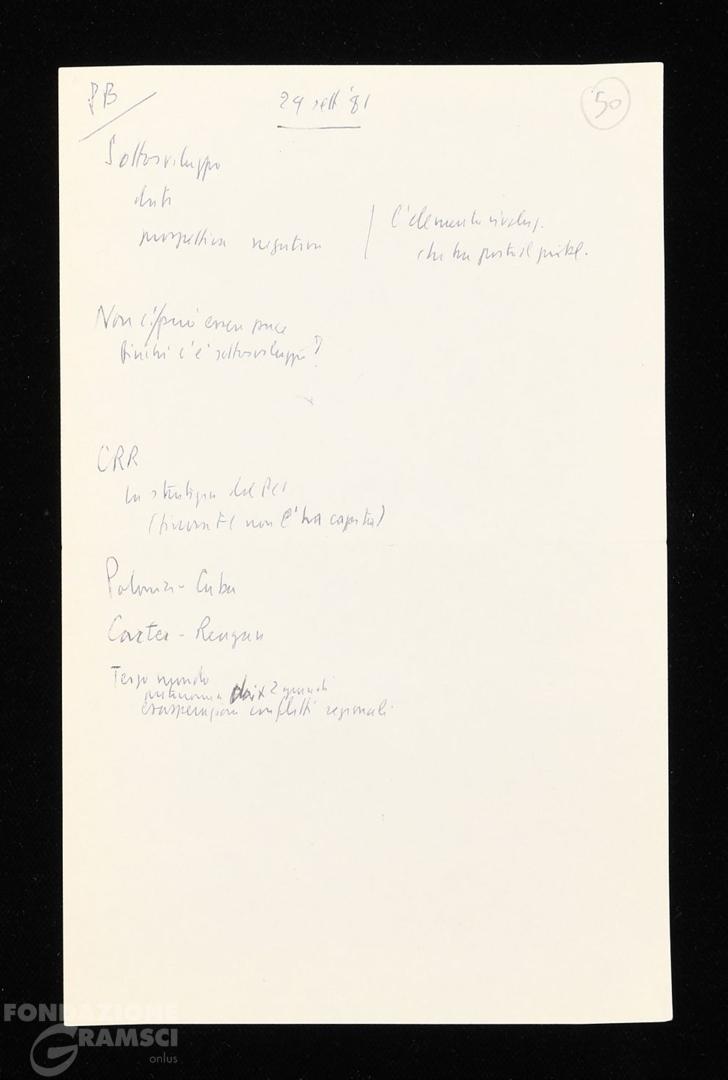 PB
29 sett '81
50
Sottosviluppo
dati
prospettiva negativa
l'elemento rivoluz.
che ha posto il probl.
Non ci può essere pace
finché c'è sottosviluppo?
CRR
la strategia del PCI
non l'ha capita)
Polonia - Cuba
Carter - Reagan
Terzo mondo
autonomia dai 2 grandi
esasperazione conflitti regionali
FONDAZIONE
GRAMSCI
onlus